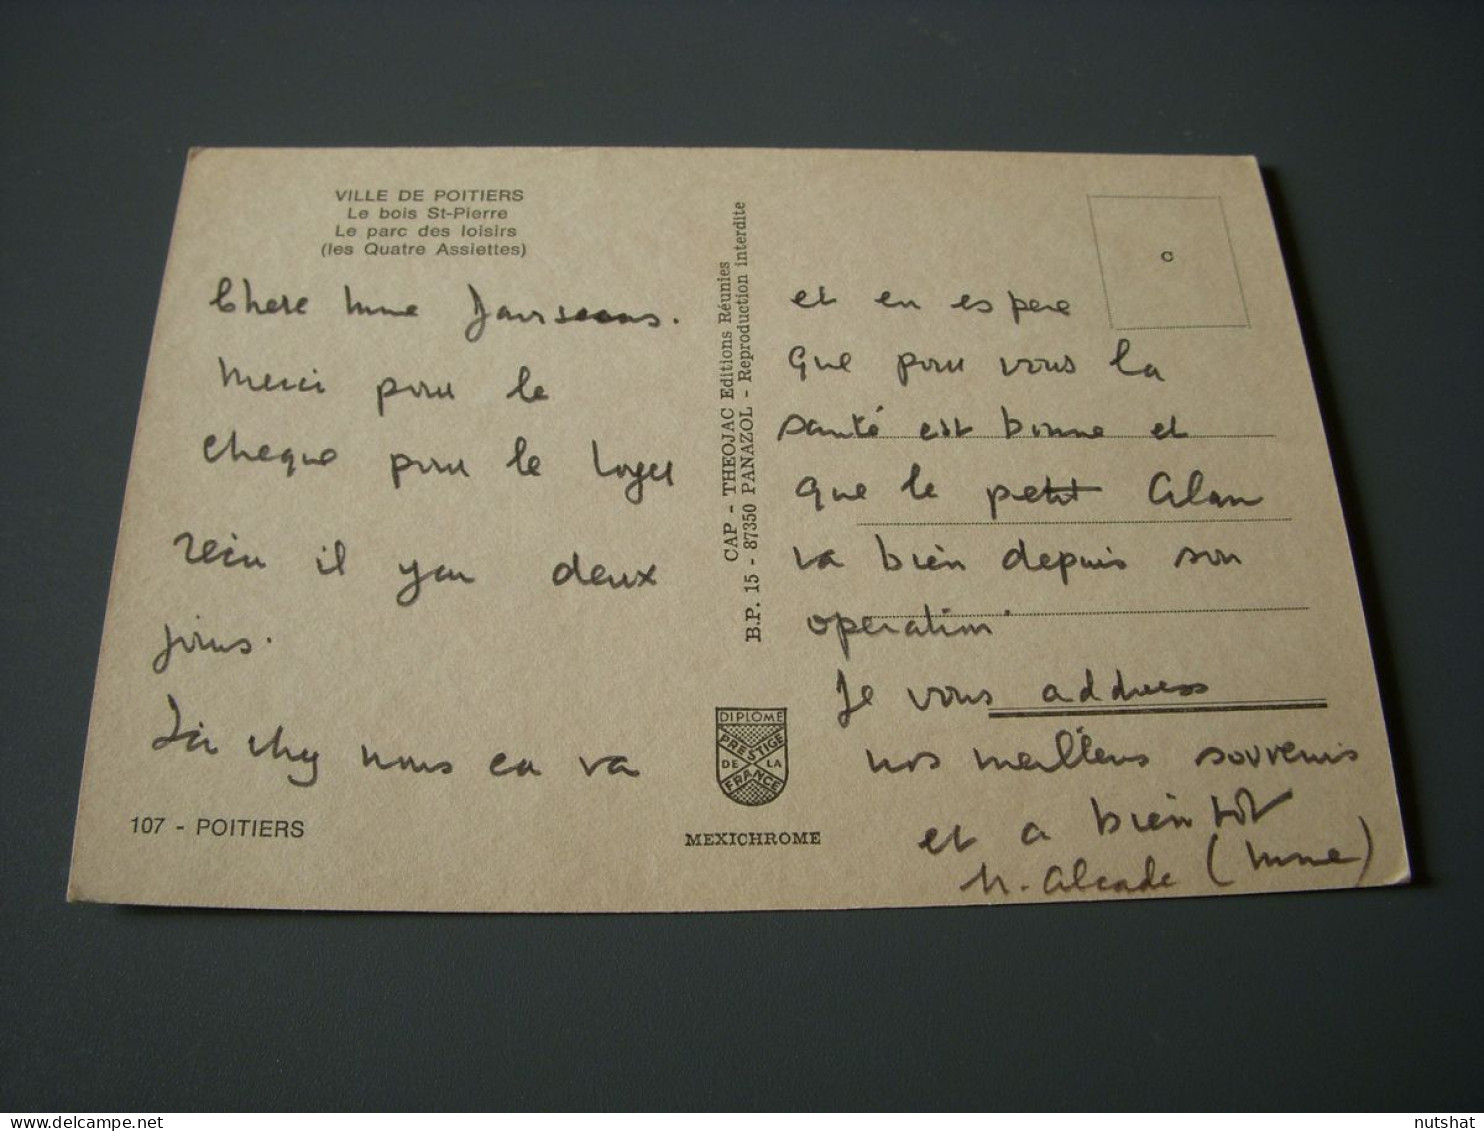 VILLE DE POITIERS
Le bois St-Pierre
Le parc des loisirs
(les Quatre Assiettes)
Chere Mme
Merci pour le
cheque pour le loyer
recu il ya deux
jours.
chez nous ca va
107 - POITIERS
CAP - THEOJAC Editions Réunies
B.P. 15 - 87350 PANAZOL - Reproduction interdite
DIPLOME
PRESTIGE
DE LA
FRANCE
MEXICHROME
c
et en espere
que pour vous la
santé est bonne et
que le petit Alan
va bien depuis son
operation.
Je vous address
nos meilleurs souvenirs
et a bientot
M. Alcade (Mme)
nutshat